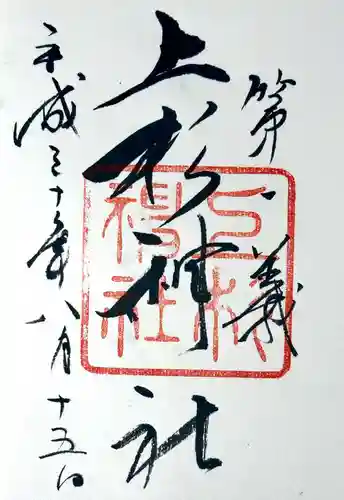 第一義
上杉神社
上杉神社
平成三十年八月十五日